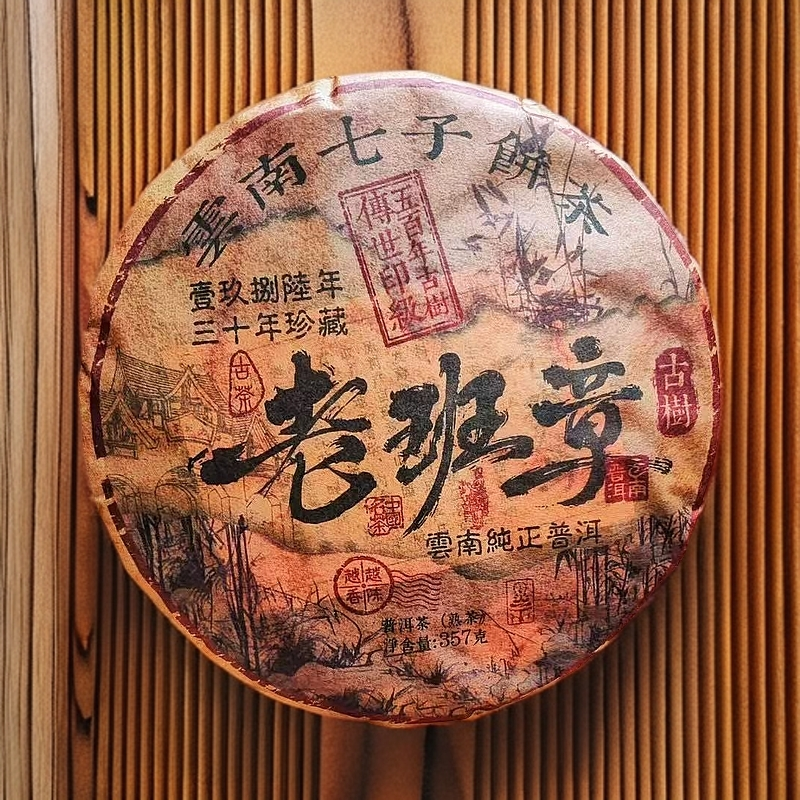 雲南七子餅茶
五百年古樹
傳世印級
壹玖捌陸年
三十年珍藏
古茶
老班章
古樹
雲南
普洱
中國
名茶
雲南純正普洱
越陳
越香
普洱茶（熟茶）
淨含量:357克